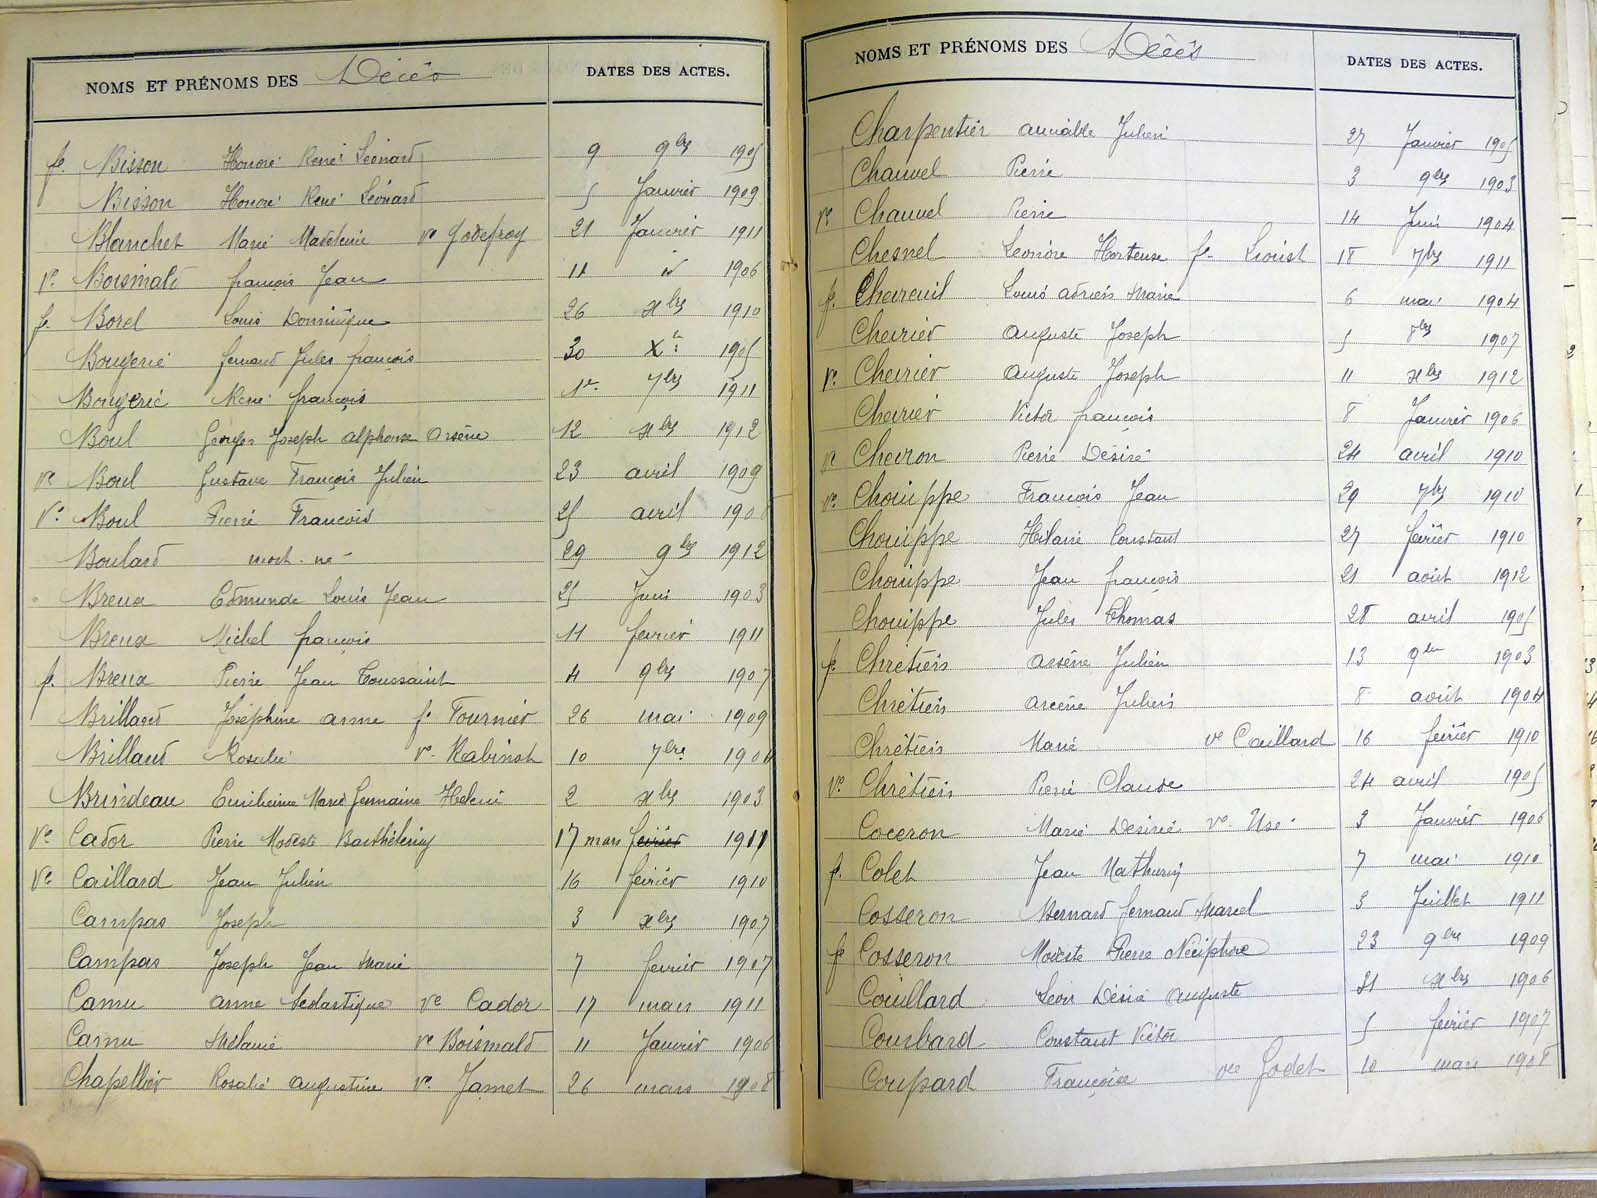 NOMS ET PRÉNOMS DES Décès DATES DES ACTES.
f. Bisson Honoré René Léonard 9 9bre 1905
Bisson Honoré René Léonard 5 Janvier 1909
Blanchet Marie Madeleine ve Godefroy 21 Janvier 1911
Ve Boismald françois Jean 11 id 1906
f. Borel Louis Dominique 26 xbre 1910
Bougerie fernand Jules françois 30 Xe 1905
Bougerie René françois 1er 7bre 1911
Boul Georges Joseph alphonse Arsène 12 xbre 1912
Ve Boul Gustave François Julien 23 avril 1909
Ve Boul Pierre François 25 avril 1908
Boulard mort-né 29 9bre 1912
Breux Edmunde Louis Jean 25 Juin 1903
Breux Michel françois 11 fevrier 1911
f. Breux Pierre Jean Toussaint 4 9bre 1907
Brilland Joséphine anne f. Fournier 26 mai 1909
Brilland Rosalie ve Rabinot 10 7bre 1904
Brindeau Emilienne Marie Germaine Hélène 2 xbre 1903
Ve Cador Pierre Modeste Barthélemy 17 mars fevrier 1911
Ve Caillard Jean Julien 16 fevrier 1910
Campas Joseph 3 xbre 1907
Campas Joseph Jean Marie 7 fevrier 1907
Camu anne Scolastique Ve Cador 17 mars 1911
Camu Mélanie ve Boismald 11 Janvier 1906
Chapellier Rosalie augustine ve Jamet 26 mars 1908
NOMS ET PRÉNOMS DES Décès DATES DES ACTES.
Charpentier aimable Julien 27 Janvier 1905
Chauvel Pierre 3 9bre 1903
Ve Chauvel Pierre 14 Juin 1904
Chesnel Léonore Hortense f. Lioust 18 7bre 1911
f. Chevreuil Louis adrien Marie 6 mai 1904
Chevrier auguste Joseph 5 8bre 1907
Ve Chevrier auguste Joseph 11 xbre 1912
Chevrier Victor françois 8 Janvier 1906
Ve Chevron Pierre Désiré 24 avril 1910
Ve Chouippe François Jean 29 7bre 1910
Chouippe Hilaire Constant 27 février 1910
Chouippe Jean françois 21 août 1912
Chouippe Jules Thomas 28 avril 1905
f. Chrétien arsène Julien 13 9bre 1903
Chrétien arsène Julien 8 août 1904
Chrétien Marie ve Caillard 16 février 1910
Ve Chrétien Pierre Claude 24 avril 1905
Coceron Marie Désirée ve Usé 3 Janvier 1906
f. Colet Jean Mathurin 7 mai 1910
Cosseron Bernard fernand Marcel 3 Juillet 1911
f. Cosseron Modeste Pierre Néciphore 23 9bre 1909
Couillard Léon Désiré Auguste 21 xbre 1906
Coursbard Constant Victor 5 février 1907
Coupard Françoise ve Godet 10 mars 1908